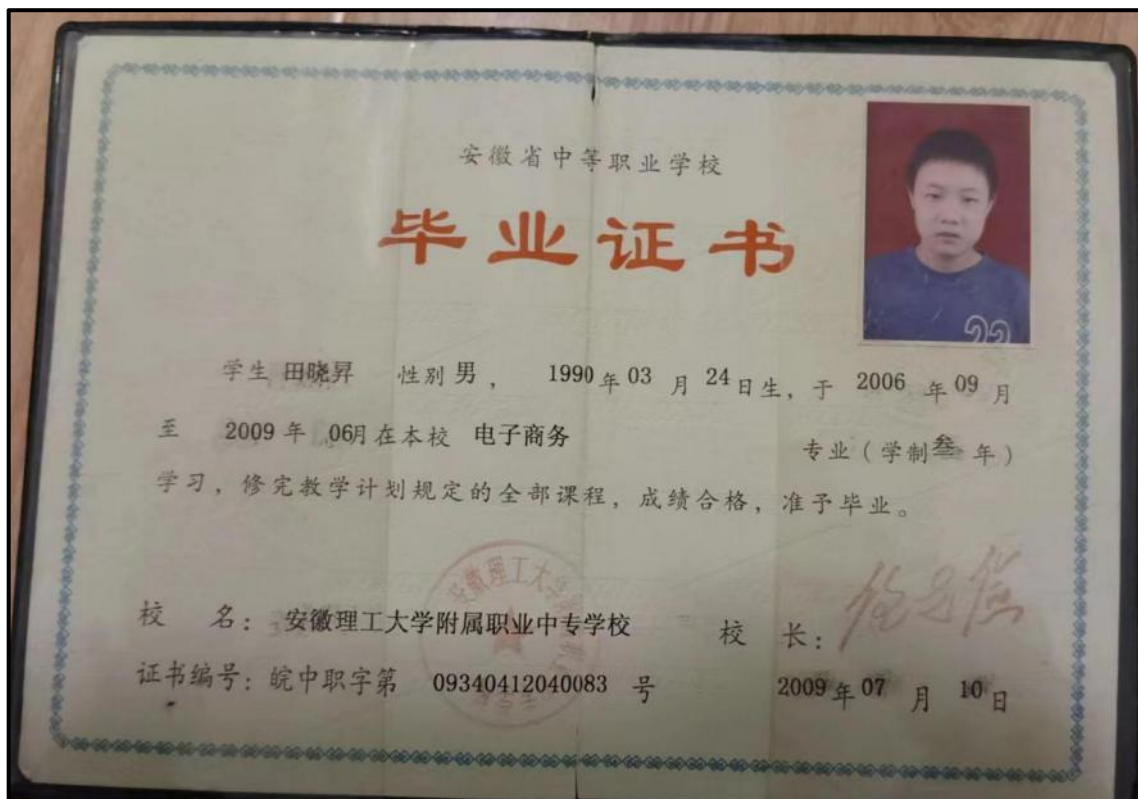 安徽省中等职业学校
毕业证书
22
学生 田晓昇 性别 男 ， 1990 年 03 月 24 日生，于 2006 年 09 月
至 2009 年 06月在本校 电子商务 专业（学制叁年）
学习，修完教学计划规定的全部课程，成绩合格，准予毕业。
安徽理工大学
校 名： 安徽理工大学附属职业中专学校 校 长：
证书编号：皖中职字第 09340412040083 号 2009 年 07 月 10 日